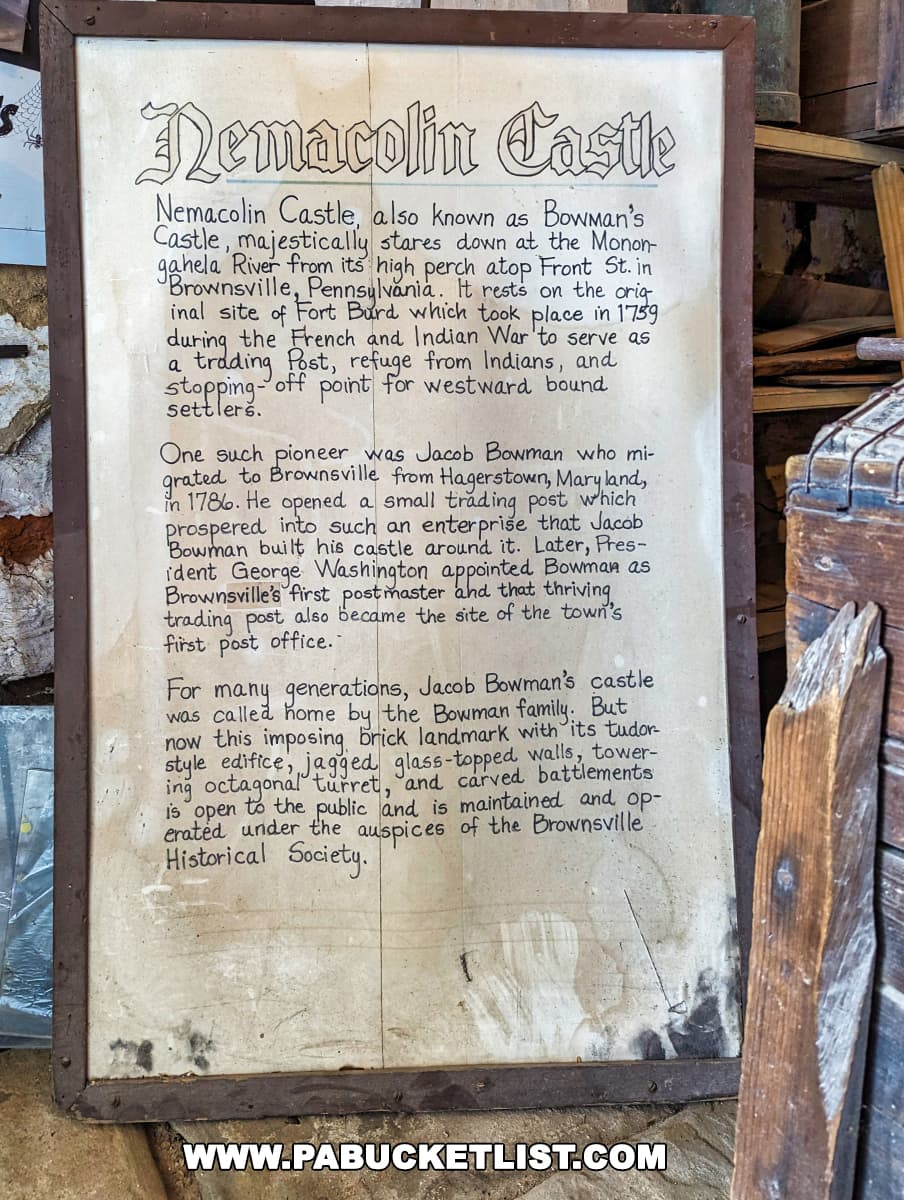 's
Nemacolin Castle
Nemacolin Castle, also known as Bowman's
Castle, majestically stares down at the Monon-
gahela River from its high perch atop Front St. in
Brownsville, Pennsylvania. It rests on the orig-
inal site of Fort Burd which took place in 1759
during the French and Indian War to serve as
a trading Post, refuge from Indians, and
stopping-off point for westward bound
settlers.
One such pioneer was Jacob Bowman who mi-
grated to Brownsville from Hagerstown, Maryland,
in 1786. He opened a small trading post which
prospered into such an enterprise that Jacob
Bowman built his castle around it. Later, Pres-
ident George Washington appointed Bowman as
Brownsville's first postmaster and that thriving
trading post also became the site of the town's
first post office.
For many generations, Jacob Bowman's castle
was called home by the Bowman family. But
now this imposing brick landmark with its tudor-
style edifice, jagged glass-topped walls, tower-
ing octagonal turret, and carved battlements
is open to the public and is maintained and op-
erated under the auspices of the Brownsville
Historical Society.
WWW.PABUCKETLIST.COM